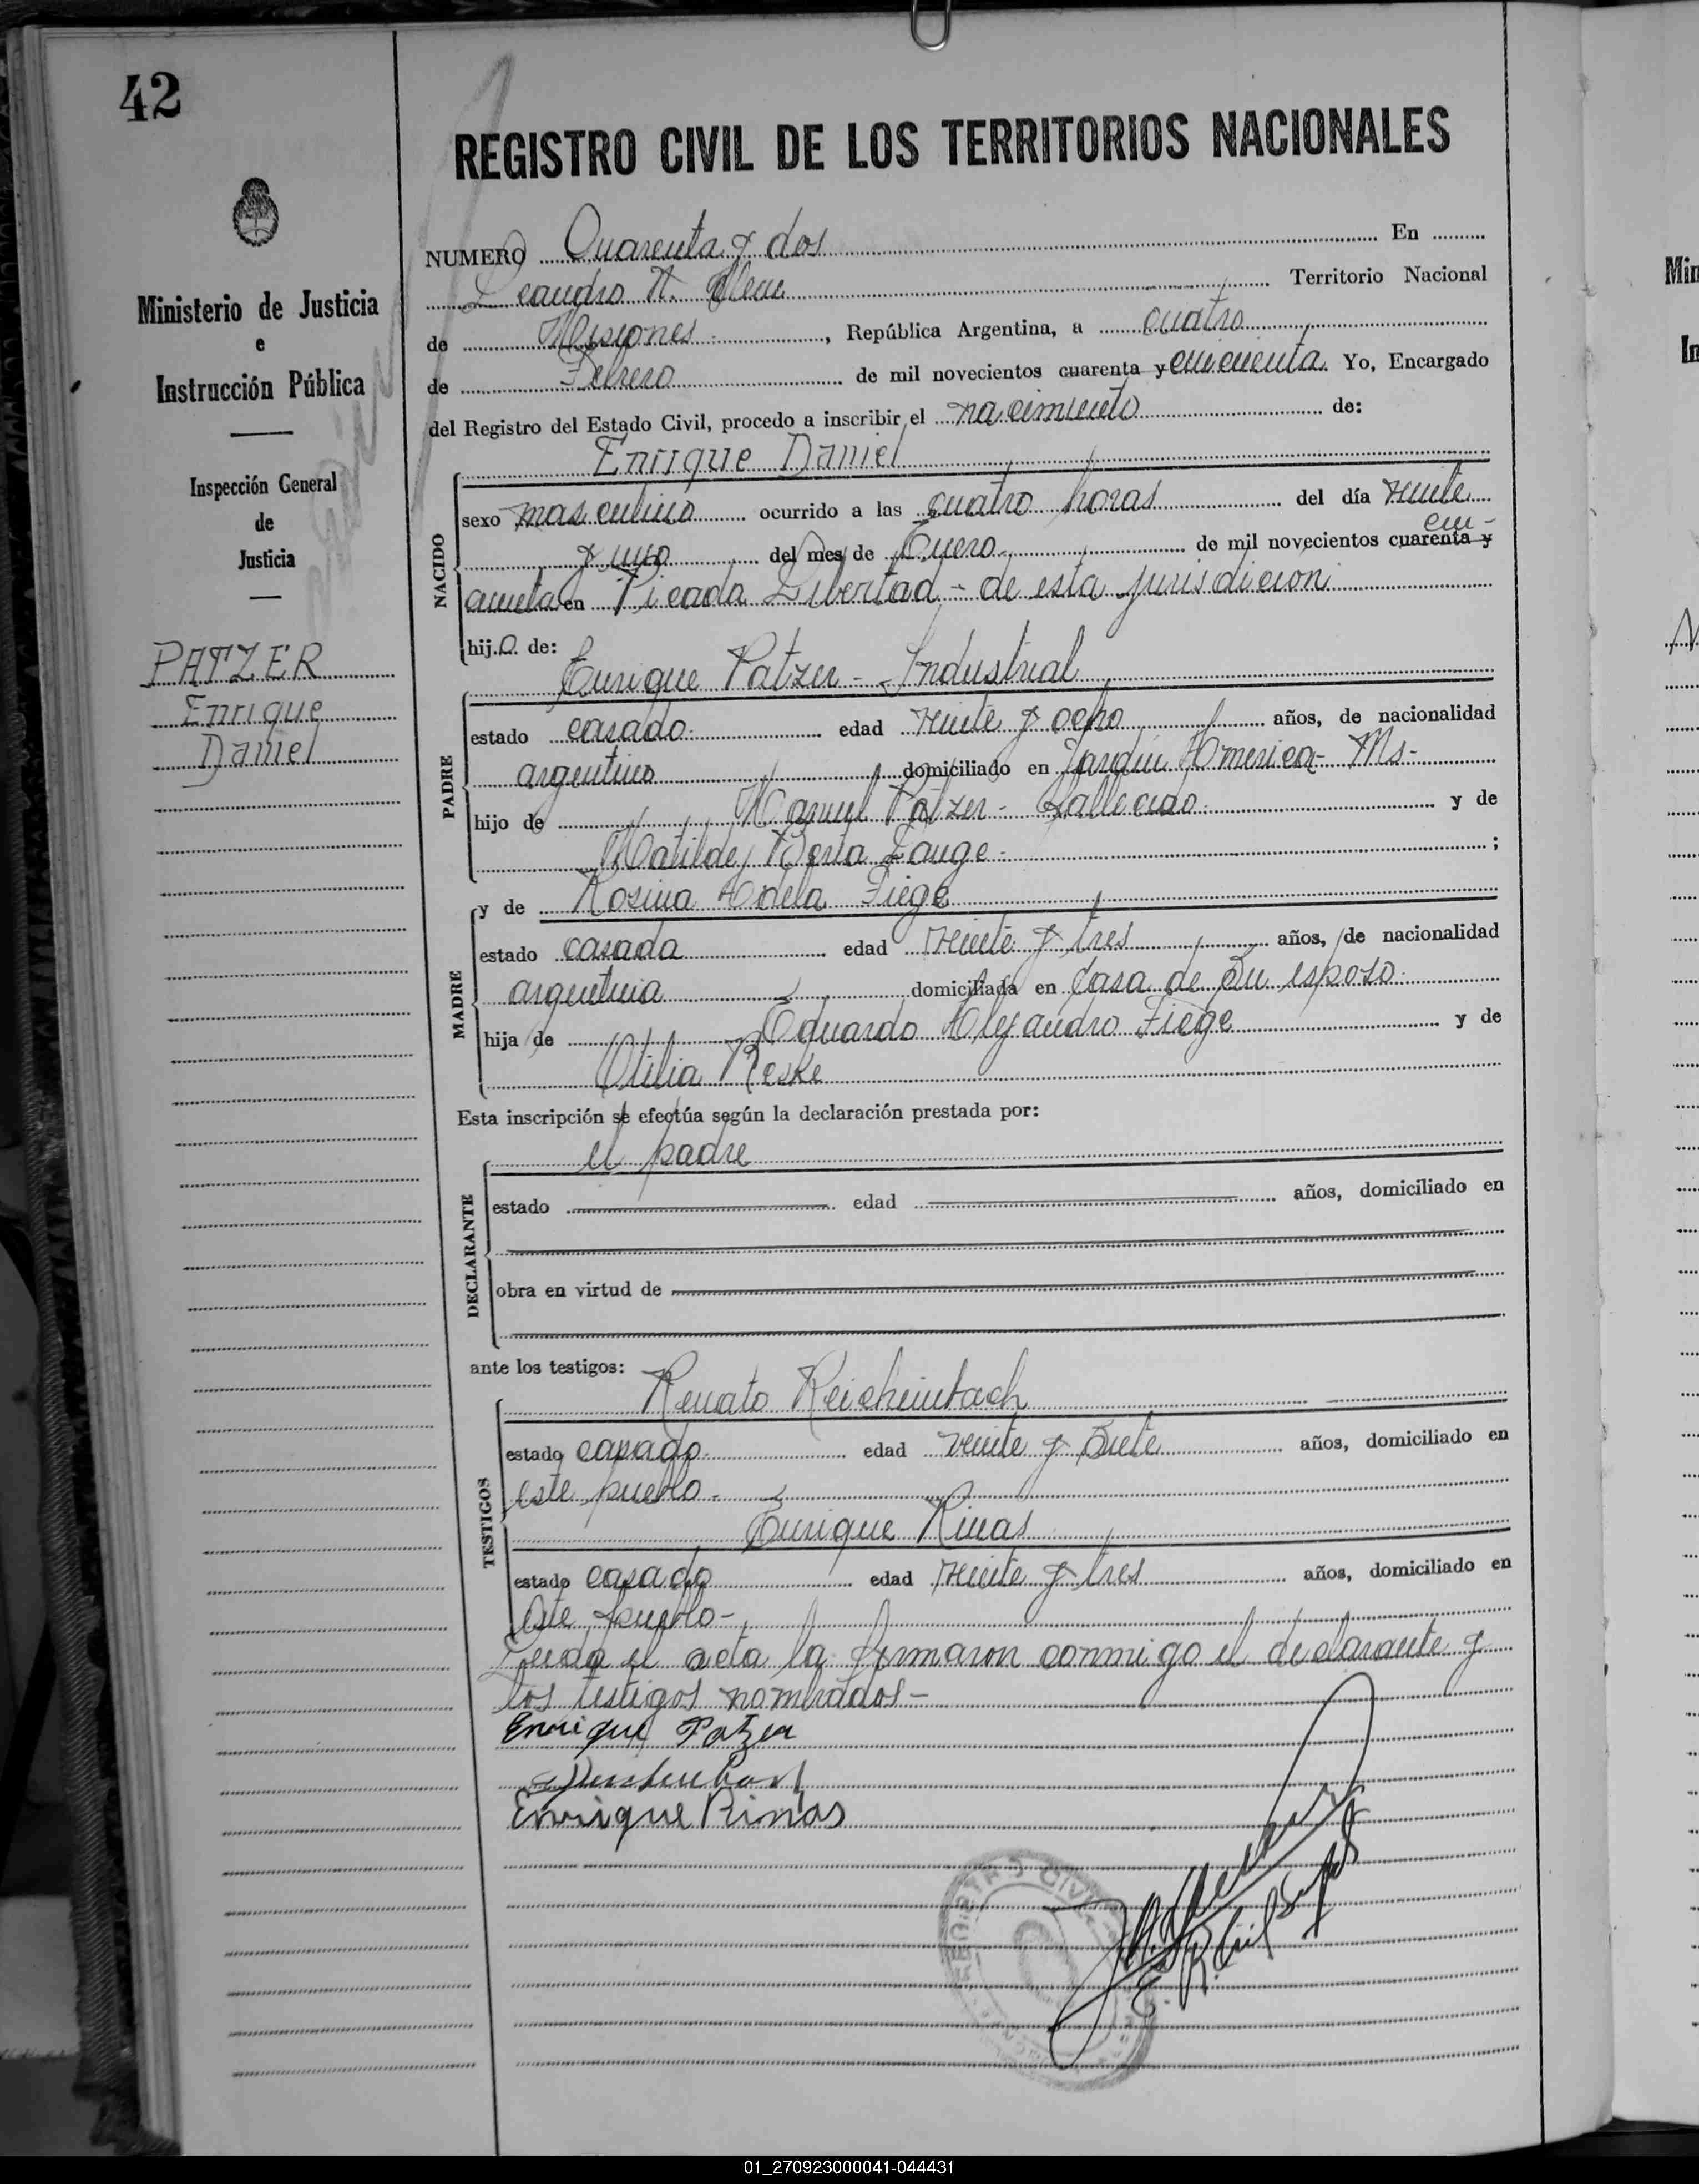 42
REGISTRO CIVIL DE LOS TERRITORIOS NACIONALES
Ministerio de Justicia
e
Instrucción Pública
Inspección General
de
Justicia
PATZER
Enrique
Daniel
NUMERO Cuarenta y dos En
Leandro N. Alem Territorio Nacional
de Misiones, República Argentina, a cuatro
de Febrero de mil novecientos cuarenta y cincuenta. Yo, Encargado
del Registro del Estado Civil, procedo a inscribir el nacimiento de:
Enrique Daniel
NACIDO
sexo masculino ocurrido a las cuatro horas del día veinte
y uno del mes de Enero de mil novecientos cuarenta y cin-
cuenta en Picada Libertad - de esta jurisdicion
hijo de:
Enrique Patzer - Industrial
PADRE
estado casado. edad veinte y ocho años, de nacionalidad
argentino domiciliado en Jardín America - Ms-
hijo de Manuel Patzer - fallecido. y de
Matilde Berta Lange - ;
MADRE
y de Rosina Adela Fiege
estado casada edad veinte y tres años, de nacionalidad
argentina domiciliada en casa de su esposo.
hija de Eduardo Alejandro Fiege y de
Otilia Reske
Esta inscripción se efectúa según la declaración prestada por:
el padre
DECLARANTE
estado edad años, domiciliado en
obra en virtud de
ante los testigos:
Renato Reichembach
TESTIGOS
estado casado. edad veinte y siete años, domiciliado en
este pueblo.
Enrique Rinas
estado casado edad veinte y tres años, domiciliado en
este pueblo-
Leida el acta la firmaron conmigo el declarante y
los testigos nombrados-
Enrique Patzer
Enrique Rinas
REGISTRO CIVIL
01_270923000041-044431